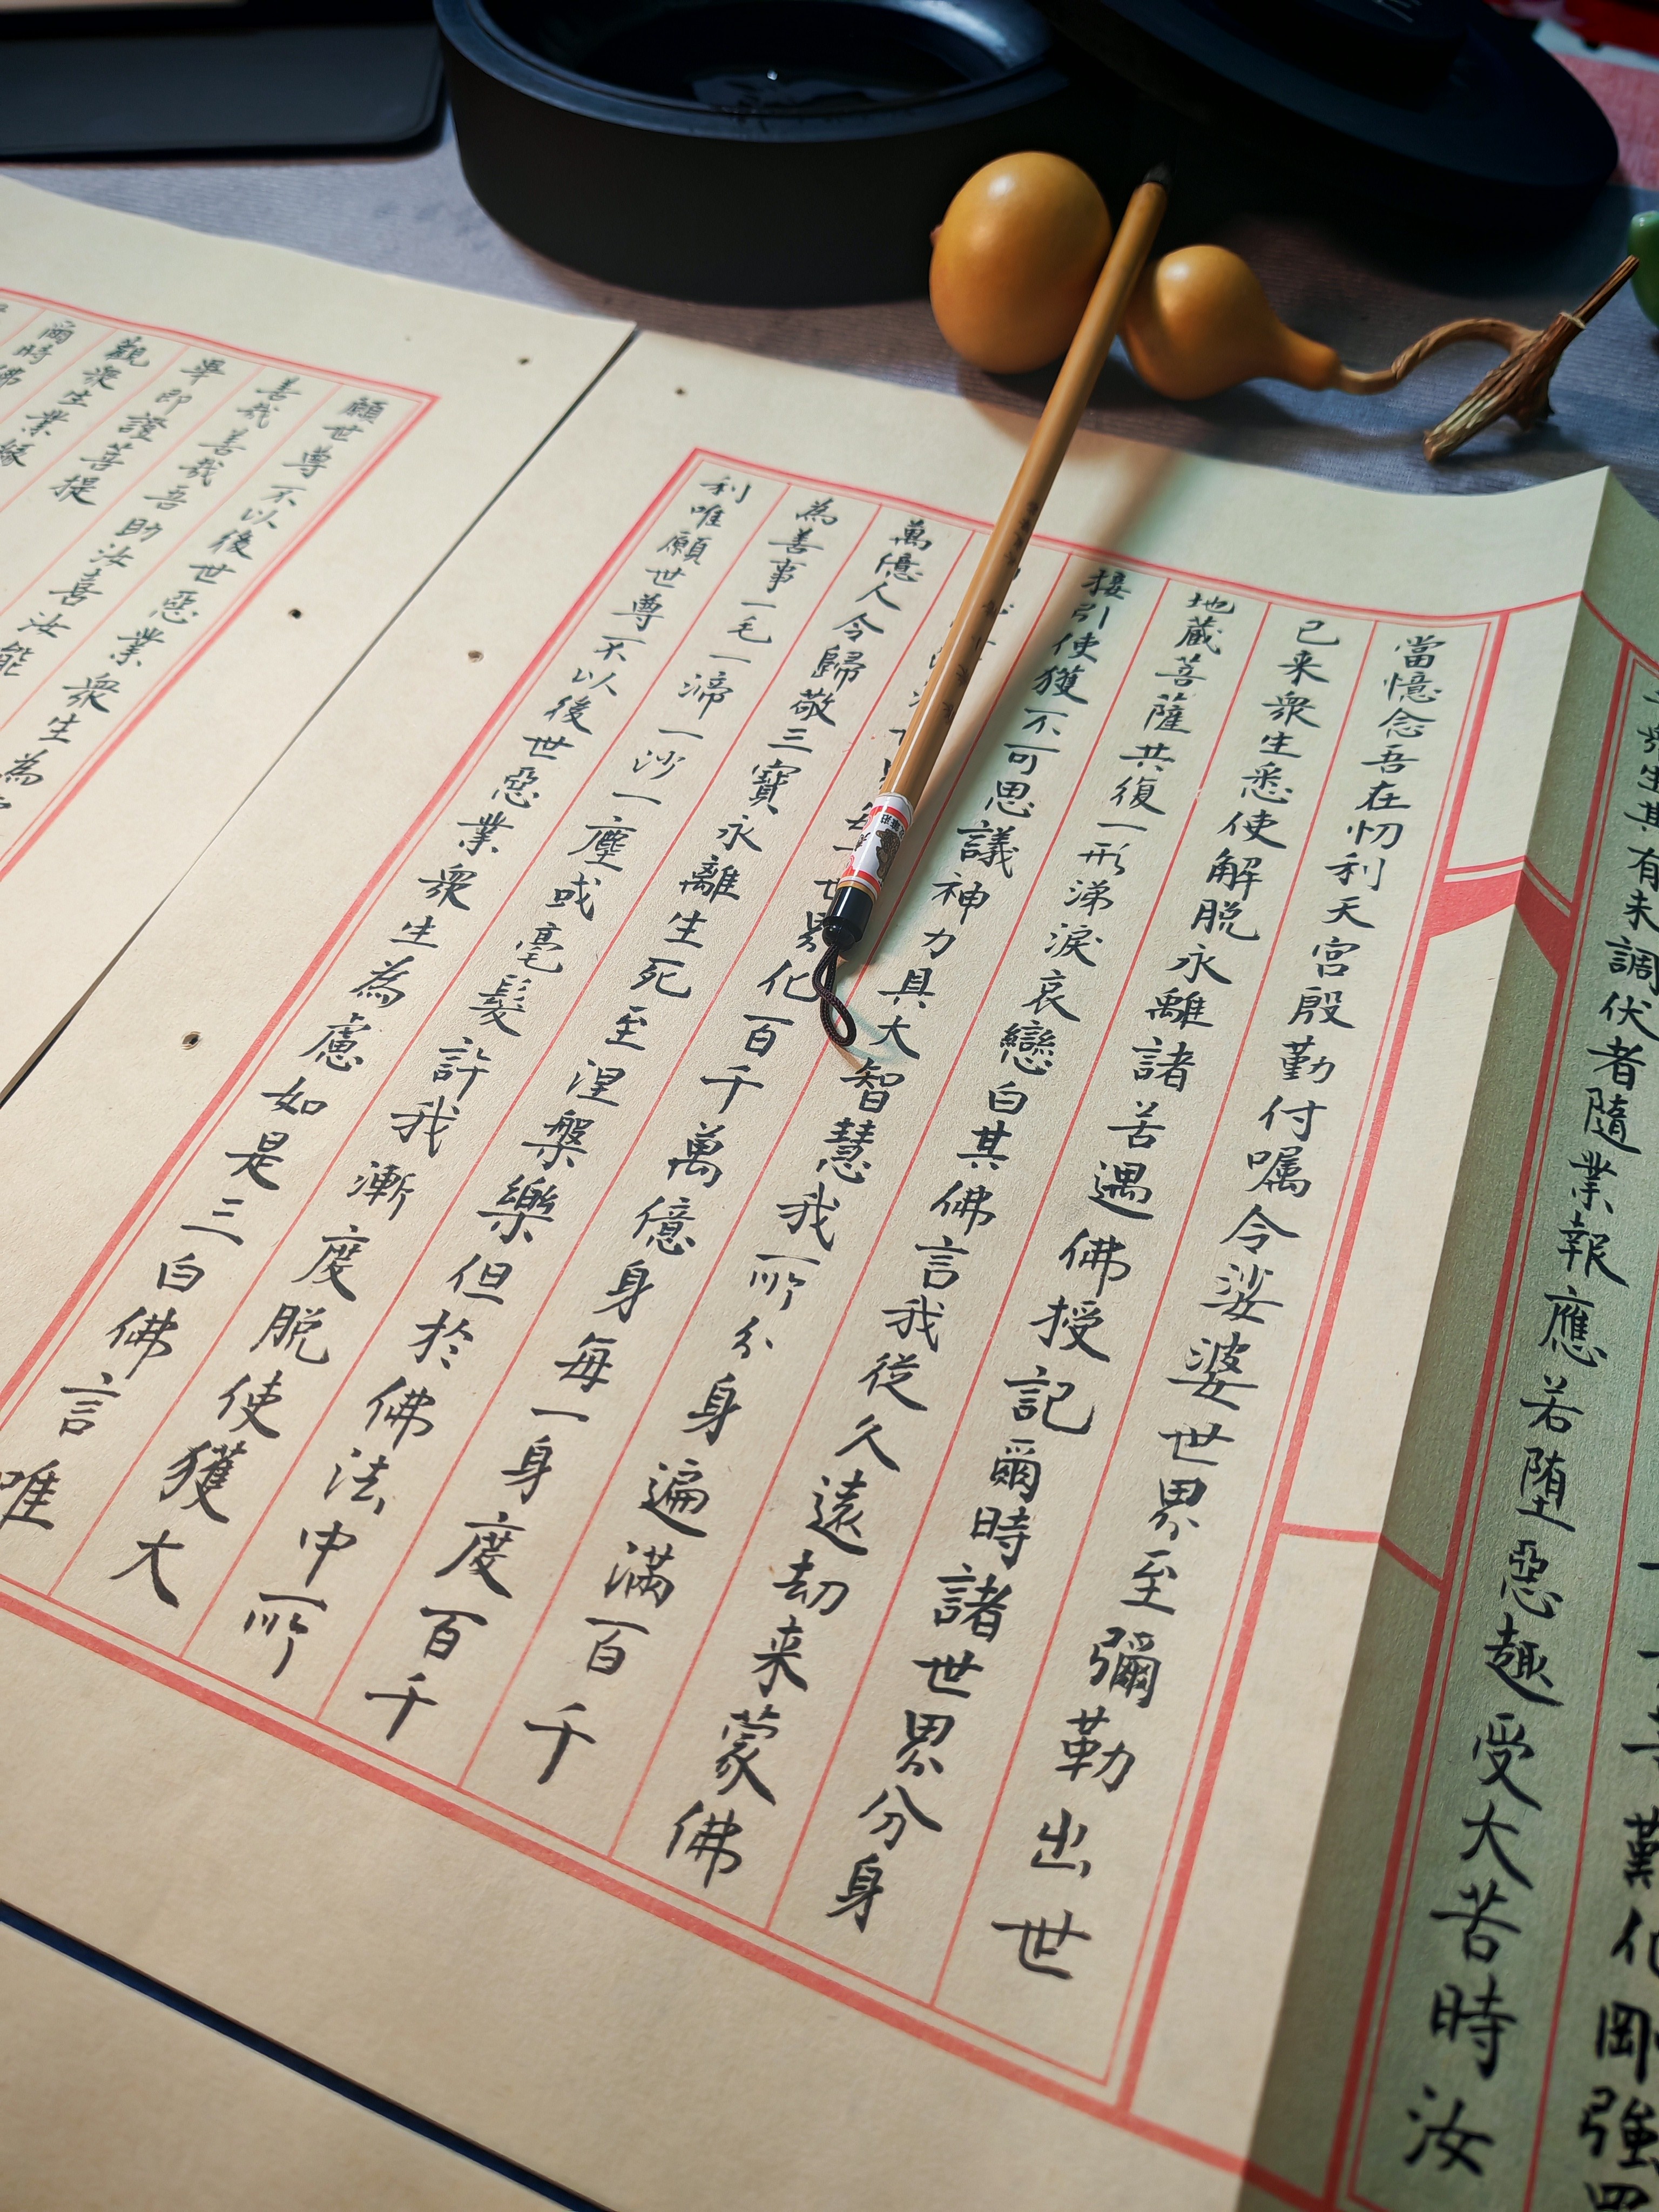 衆生其有未調伏者隨業報應若堕惡趣受大苦時汝
當憶念吾在忉利天宮殷勤付嘱令娑婆世界至彌勒出世
已来衆生悉使解脱永離諸苦遇佛授記爾時諸世界分身
地藏菩薩共復一形涕淚哀戀白其佛言我從久遠劫来蒙佛
接引使獲不可思議神力具大智慧我所分身遍滿百千
世界化百千萬億身每一身度百千
萬億人令歸敬三寶永離生死至涅槃樂但於佛法中所
為善事一毛一渧一沙一塵或毫髮許我漸度脱使獲大
利唯願世尊不以後世惡業衆生為慮如是三白佛言唯
願世尊不以後世惡業衆生為
善哉善哉吾助汝喜汝能
畢即證菩提
觀衆生業緣
爾時佛